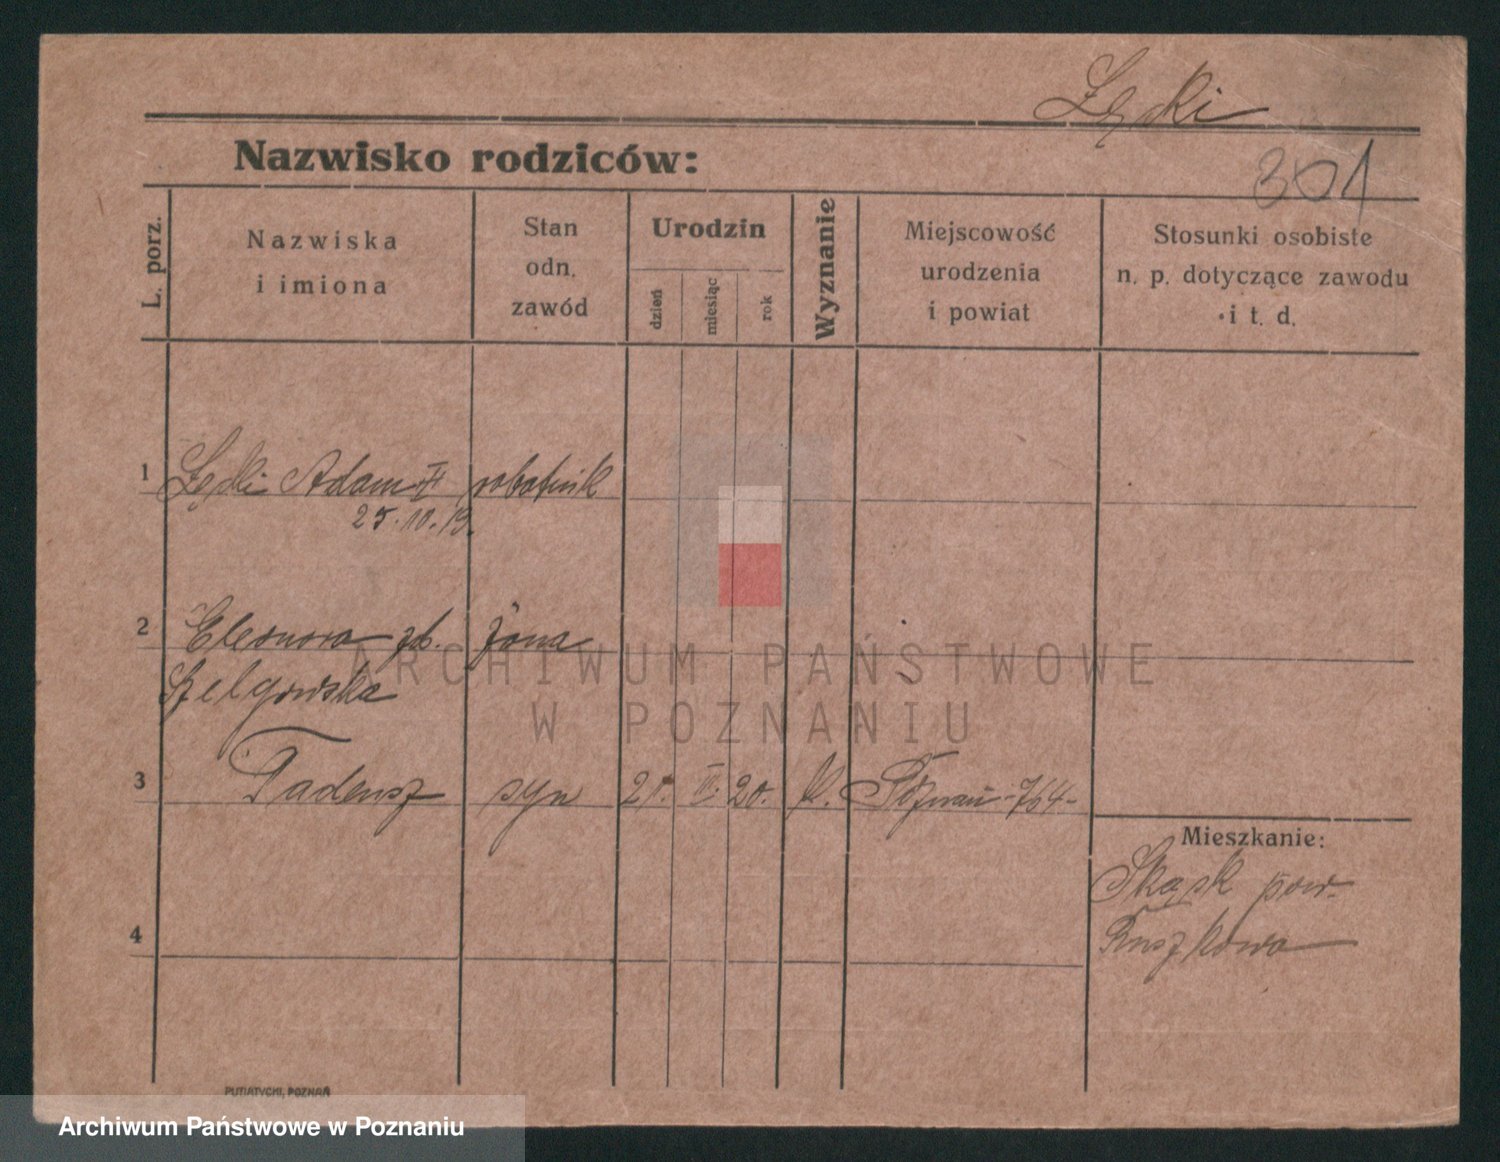 Łęski
Nazwisko rodziców:
301
L. porz.
Nazwiska
i imiona
Stan
odn.
zawód
Urodzin
dzień
miesiąc
rok
Wyznanie
Miejscowość
urodzenia
i powiat
Stosunki osobiste
n. p. dotyczące zawodu
i t. d.
1
Łęski Adam II robotnik
25.10.19.
2
Eleonora zd. żona
3
Tadeusz syn 21. III. 20. k. Poznań -764-
Mieszkanie:
pow.
4
PUTIATYCKI, POZNAŃ
ARCHIWUM PAŃSTWOWE
W POZNANIU
Archiwum Państwowe w Poznaniu